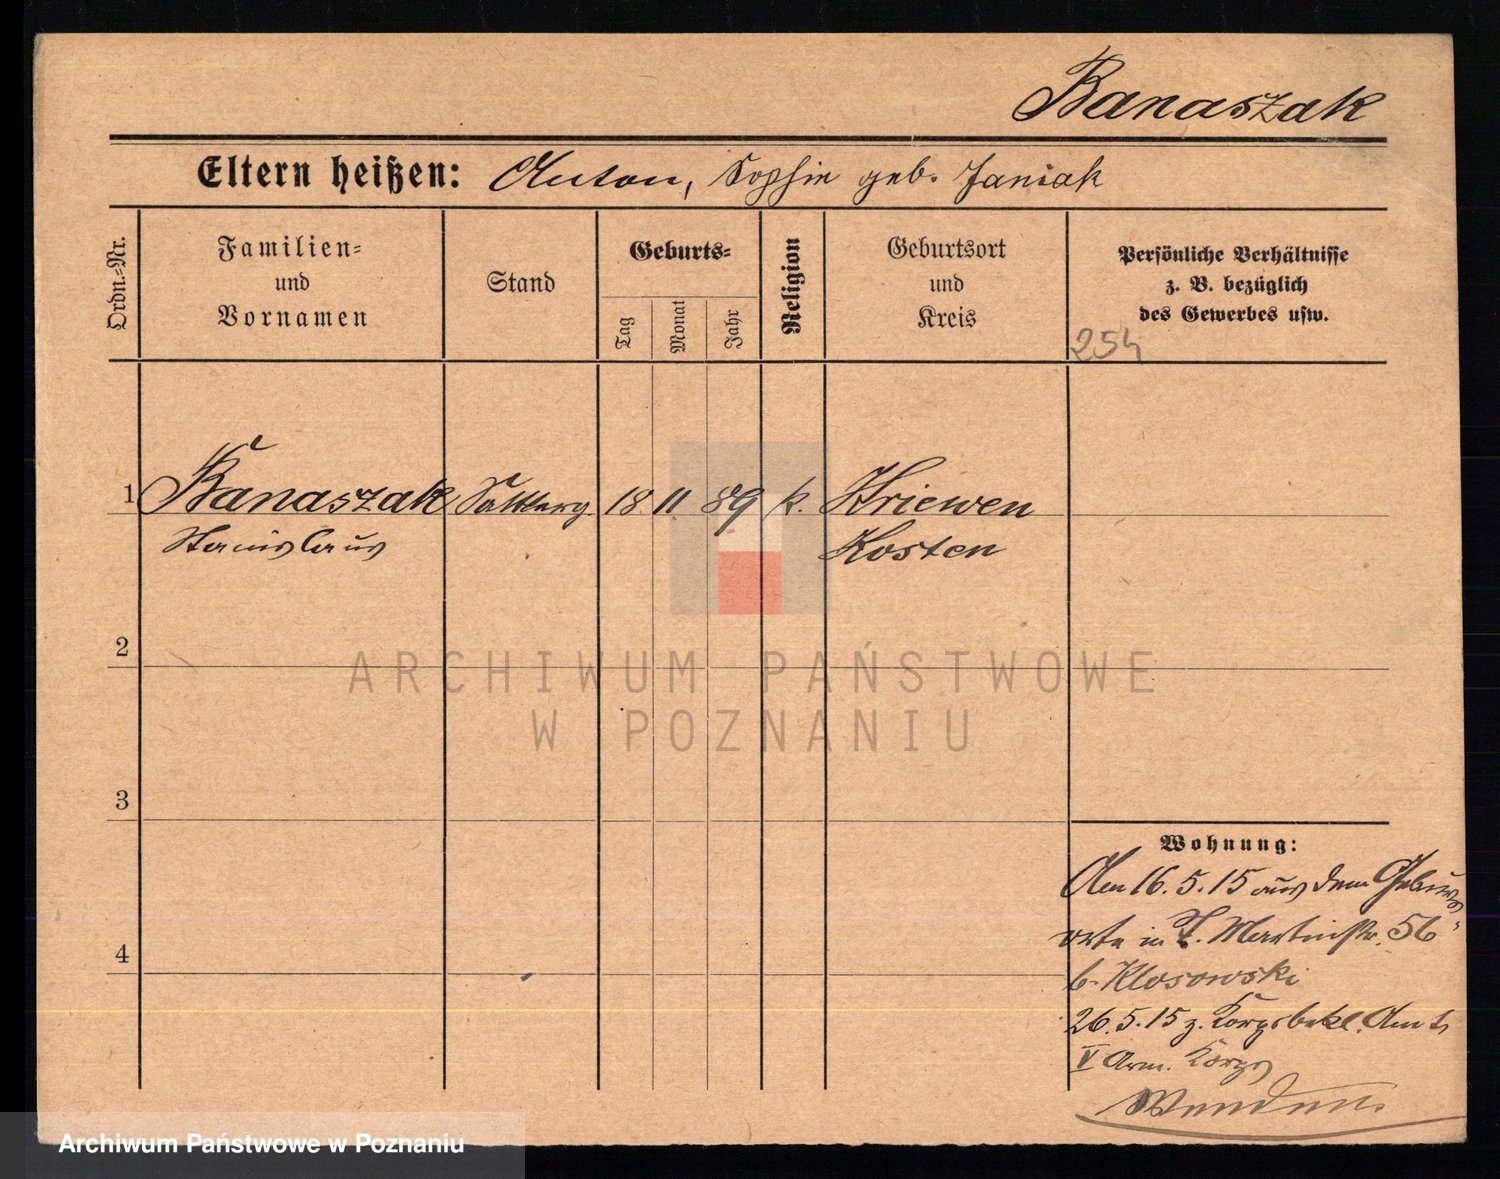 Banaszak
Eltern heißen: Anton, Sophie geb. Janiak
Ordn.=Nr.
Familien=
und
Vornamen
Stand
Geburts=
Tag
Monat
Jahr
Religion
Geburtsort
und
Kreis
Persönliche Verhältnisse
z. B. bezüglich
des Gewerbes usw.
254
1 Banaszak Sattlerg. 18 11 89 k. Kriewen
Stanislaus Kosten
2
3
4
ARCHIWUM PAŃSTWOWE
W POZNANIU
Wohnung:
Am 16.5.15 aus dem
orte in St. Martinstr. 56
b. Klosowski
26.5.15 z. Korpsbekl. Amt
V Arm. Korps
Archiwum Państwowe w Poznaniu